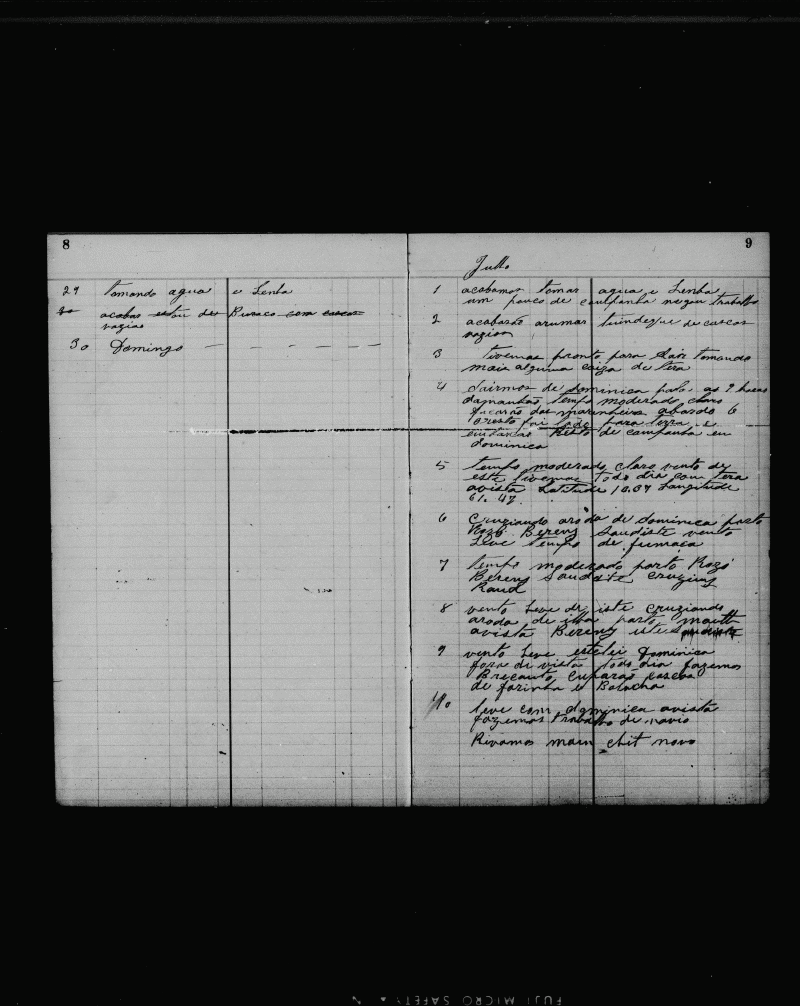 8
29 tomando agua e Lenha
30 acabar estiu de Buraco com cascos
vazios
30 Domingo — — — — —
9
Julho
1 acabamos tomar agua e Lenha
um pouco de campanha negou trabalho
2 acabarão arumar de cascos
vazios
3 tivemos pronto para Sair tomando
mais alguma coiza de tera
4 Sairmos de Dominica pelo as 9 horas
damanhão, tempo moderado, claro
ficarão dos marinheiros abordo 6
o resto foi todo para terra e
Resto de campanha en
dominica
5 tempo moderado, claro vento de
este tivemos todo dia com tera
avista Latitude 15.37 Longitude
61. 47.
6 Cruziando aroda de dominica porto
Rozó Berens Saudiste vento
Leve tempo de fumaca
7 tempo moderado porto Rozó
Berens Saudiste cruzing
Raund
8 vento Leve de iste cruziando
aroda de ilha porto mautt
avista Berens iste
9 vento Leve Dominica
fora di vista todo dia fazemos
cascos
de farinha e Bolacha
10 leve com dominica avista
fazemos trabalho de navio
Rivamos main chit novo
FUJI MICRO SAFETY